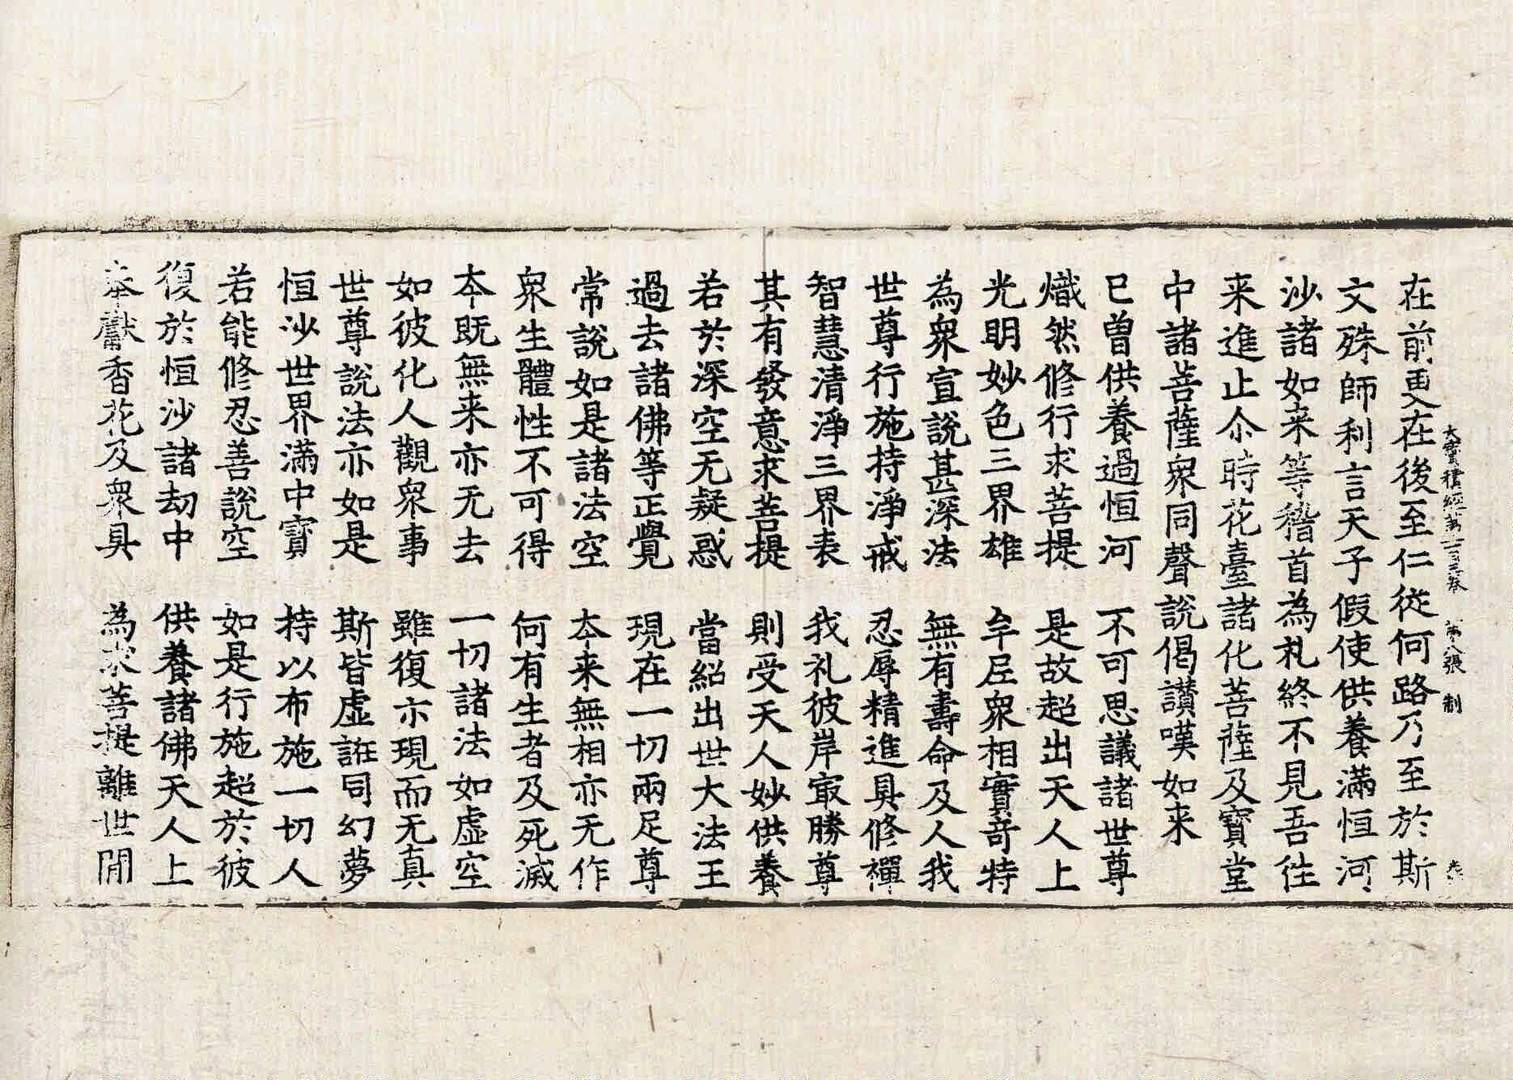 大寶積經第一百三卷　第八張　制
在前更在後至仁從何路乃至於斯
文殊師利言天子假使供養滿恒河
沙諸如来等稽首為礼終不見吾往
来進止尒時花臺諸化菩薩及寶堂
中諸菩薩衆同聲說偈讃嘆如来
已曾供養過恒河　不可思議諸世尊
熾然修行求菩提　是故超出天人上
光明妙色三界雄　牟尼衆相實奇特
為衆宣說甚深法　無有壽命及人我
世尊行施持淨戒　忍辱精進具修禪
智慧清淨三界表　我礼彼岸寂勝尊
其有發意求菩提　則受天人妙供養
若於深空无疑惑　當紹出世大法王
過去諸佛等正覺　現在一切兩足尊
常說如是諸法空　夲来無相亦无作
衆生體性不可得　何有生者及死滅
夲既無来亦无去　一切諸法如虛空
如彼化人觀衆事　雖復亦現而无真
世尊說法亦如是　斯皆虛誑同幻夢
恒沙世界滿中寶　持以布施一切人
若能修忍善說空　如是行施超於彼
復於恒沙諸劫中　供養諸佛天人上
奉獻香花及衆具　為求菩提離世閒